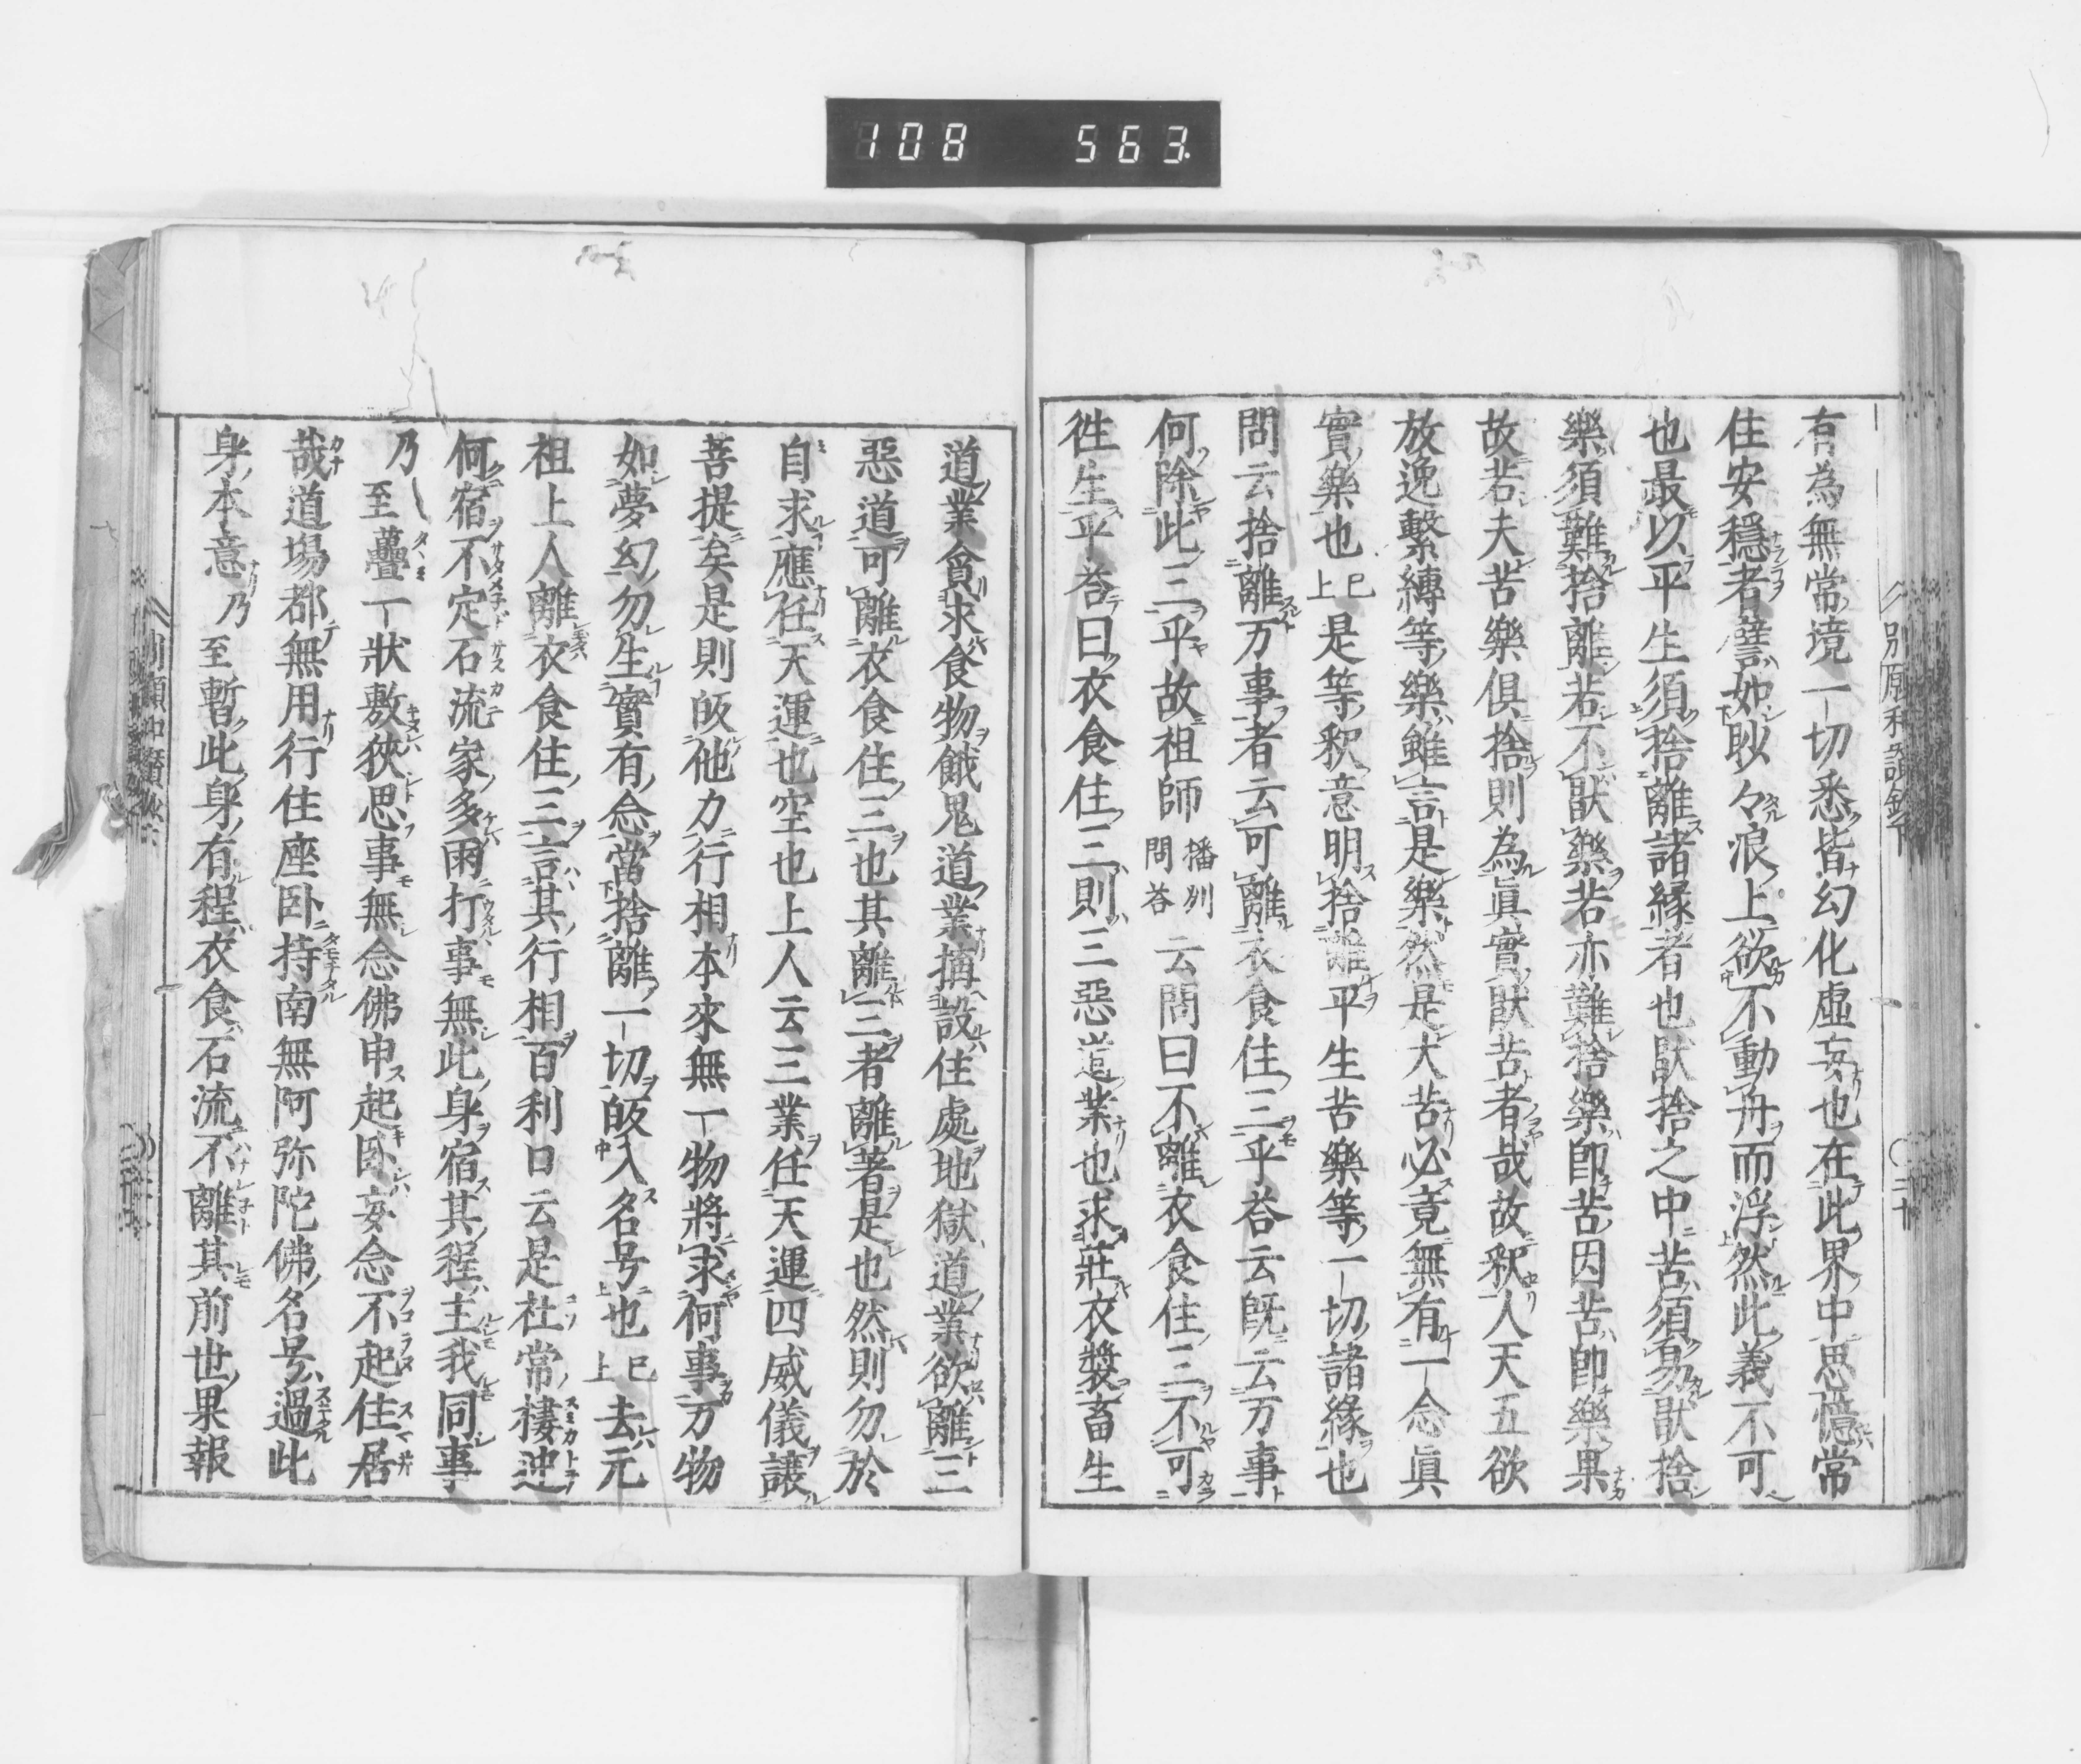 108 563
有為無常境一切悉皆幻化虛妄也在此界中思憶常
住安穩者譬如眇々浪上欲不動舟而浮然此義不可
也最以平生須捨離諸縁者也猒捨之中苦須易猒捨
樂須難捨離若不猒樂若亦難捨樂即苦因苦即樂果
故若夫苦樂俱捨則為眞實猒苦者哉故釈人天五欲
放逸繫縛等樂雖言是樂然是大苦必竟無有一念眞
實樂也已上是等釈意明捨離平生苦樂等一切諸縁也
問云捨離万事者云可離衣食住三乎荅云既云万事
何除此三乎故祖師播州問荅云問曰不離衣食住三不可
徃生乎荅曰衣食住三則三惡道業也求莊衣裝畜生
道業貪求食物餓鬼道業搆設住處地獄道業欲離三
惡道可離衣食住三也其離三者離著是也然則勿於
自求應任天運也空也上人云三業任天運四威儀讓
菩提矣是則皈他力行相本來無一物將求何事万物
如夢幻勿生實有念當捨離一切皈入名号也已上去元
祖上人離衣食住三言其行相百利口云是社常棲迚
何宿不定石流家多雨打事無此身宿其程主我同事
乃至疊一狀敷狹思事無念佛申起卧妄念不起住居
哉道場都無用行住座卧持南無阿弥陀佛名号過此
身本意乃至暫此身有程衣食石流不離其前世果報